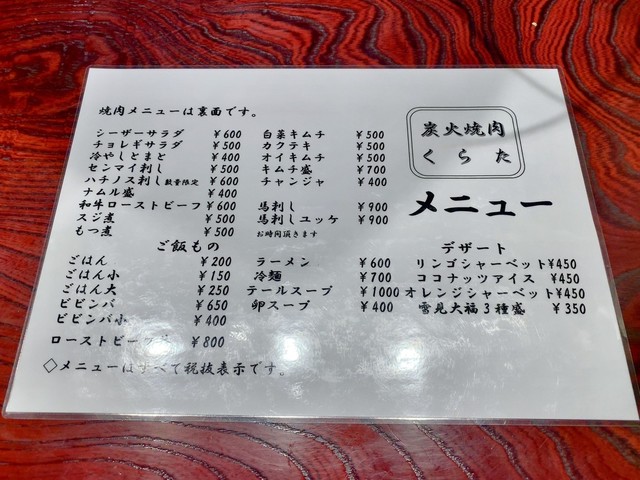 焼肉メニューは裏面です。
シーザーサラダ ¥600
チョレギサラダ ¥500
冷やしとまと ¥400
センマイ刺し ¥500
ハチノス刺し 数量限定 ¥600
ナムル盛 ¥400
和牛ローストビーフ ¥600
スジ煮 ¥500
もつ煮 ¥500
白菜キムチ ¥500
カクテキ ¥500
オイキムチ ¥500
キムチ盛 ¥700
チャンジャ ¥400
馬刺し ¥900
馬刺しユッケ ¥900
お時間頂きます
炭火焼肉
くらた
メニュー
ご飯もの
ごはん ¥200
ごはん小 ¥150
ごはん大 ¥250
ビビンバ ¥650
ビビンバ小 ¥400
ローストビーフ ¥800
ラーメン ¥600
冷麺 ¥700
テールスープ ¥1000
卵スープ ¥400
デザート
リンゴシャーベット¥450
ココナッツアイス ¥450
オレンジシャーベット¥450
雪見大福3種盛 ¥350
◇メニューはすべて税抜表示です。